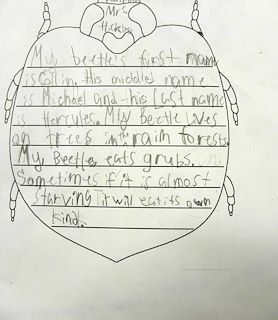 Mrs.
My beetle's first name
is Collin. His middle name
is Michael and this last name
is Hercules. My Beetle lives
on trees in the rain forests.
My Beetle eats grubs.
Sometimes if it is almost
starving it will eat its own
kind.